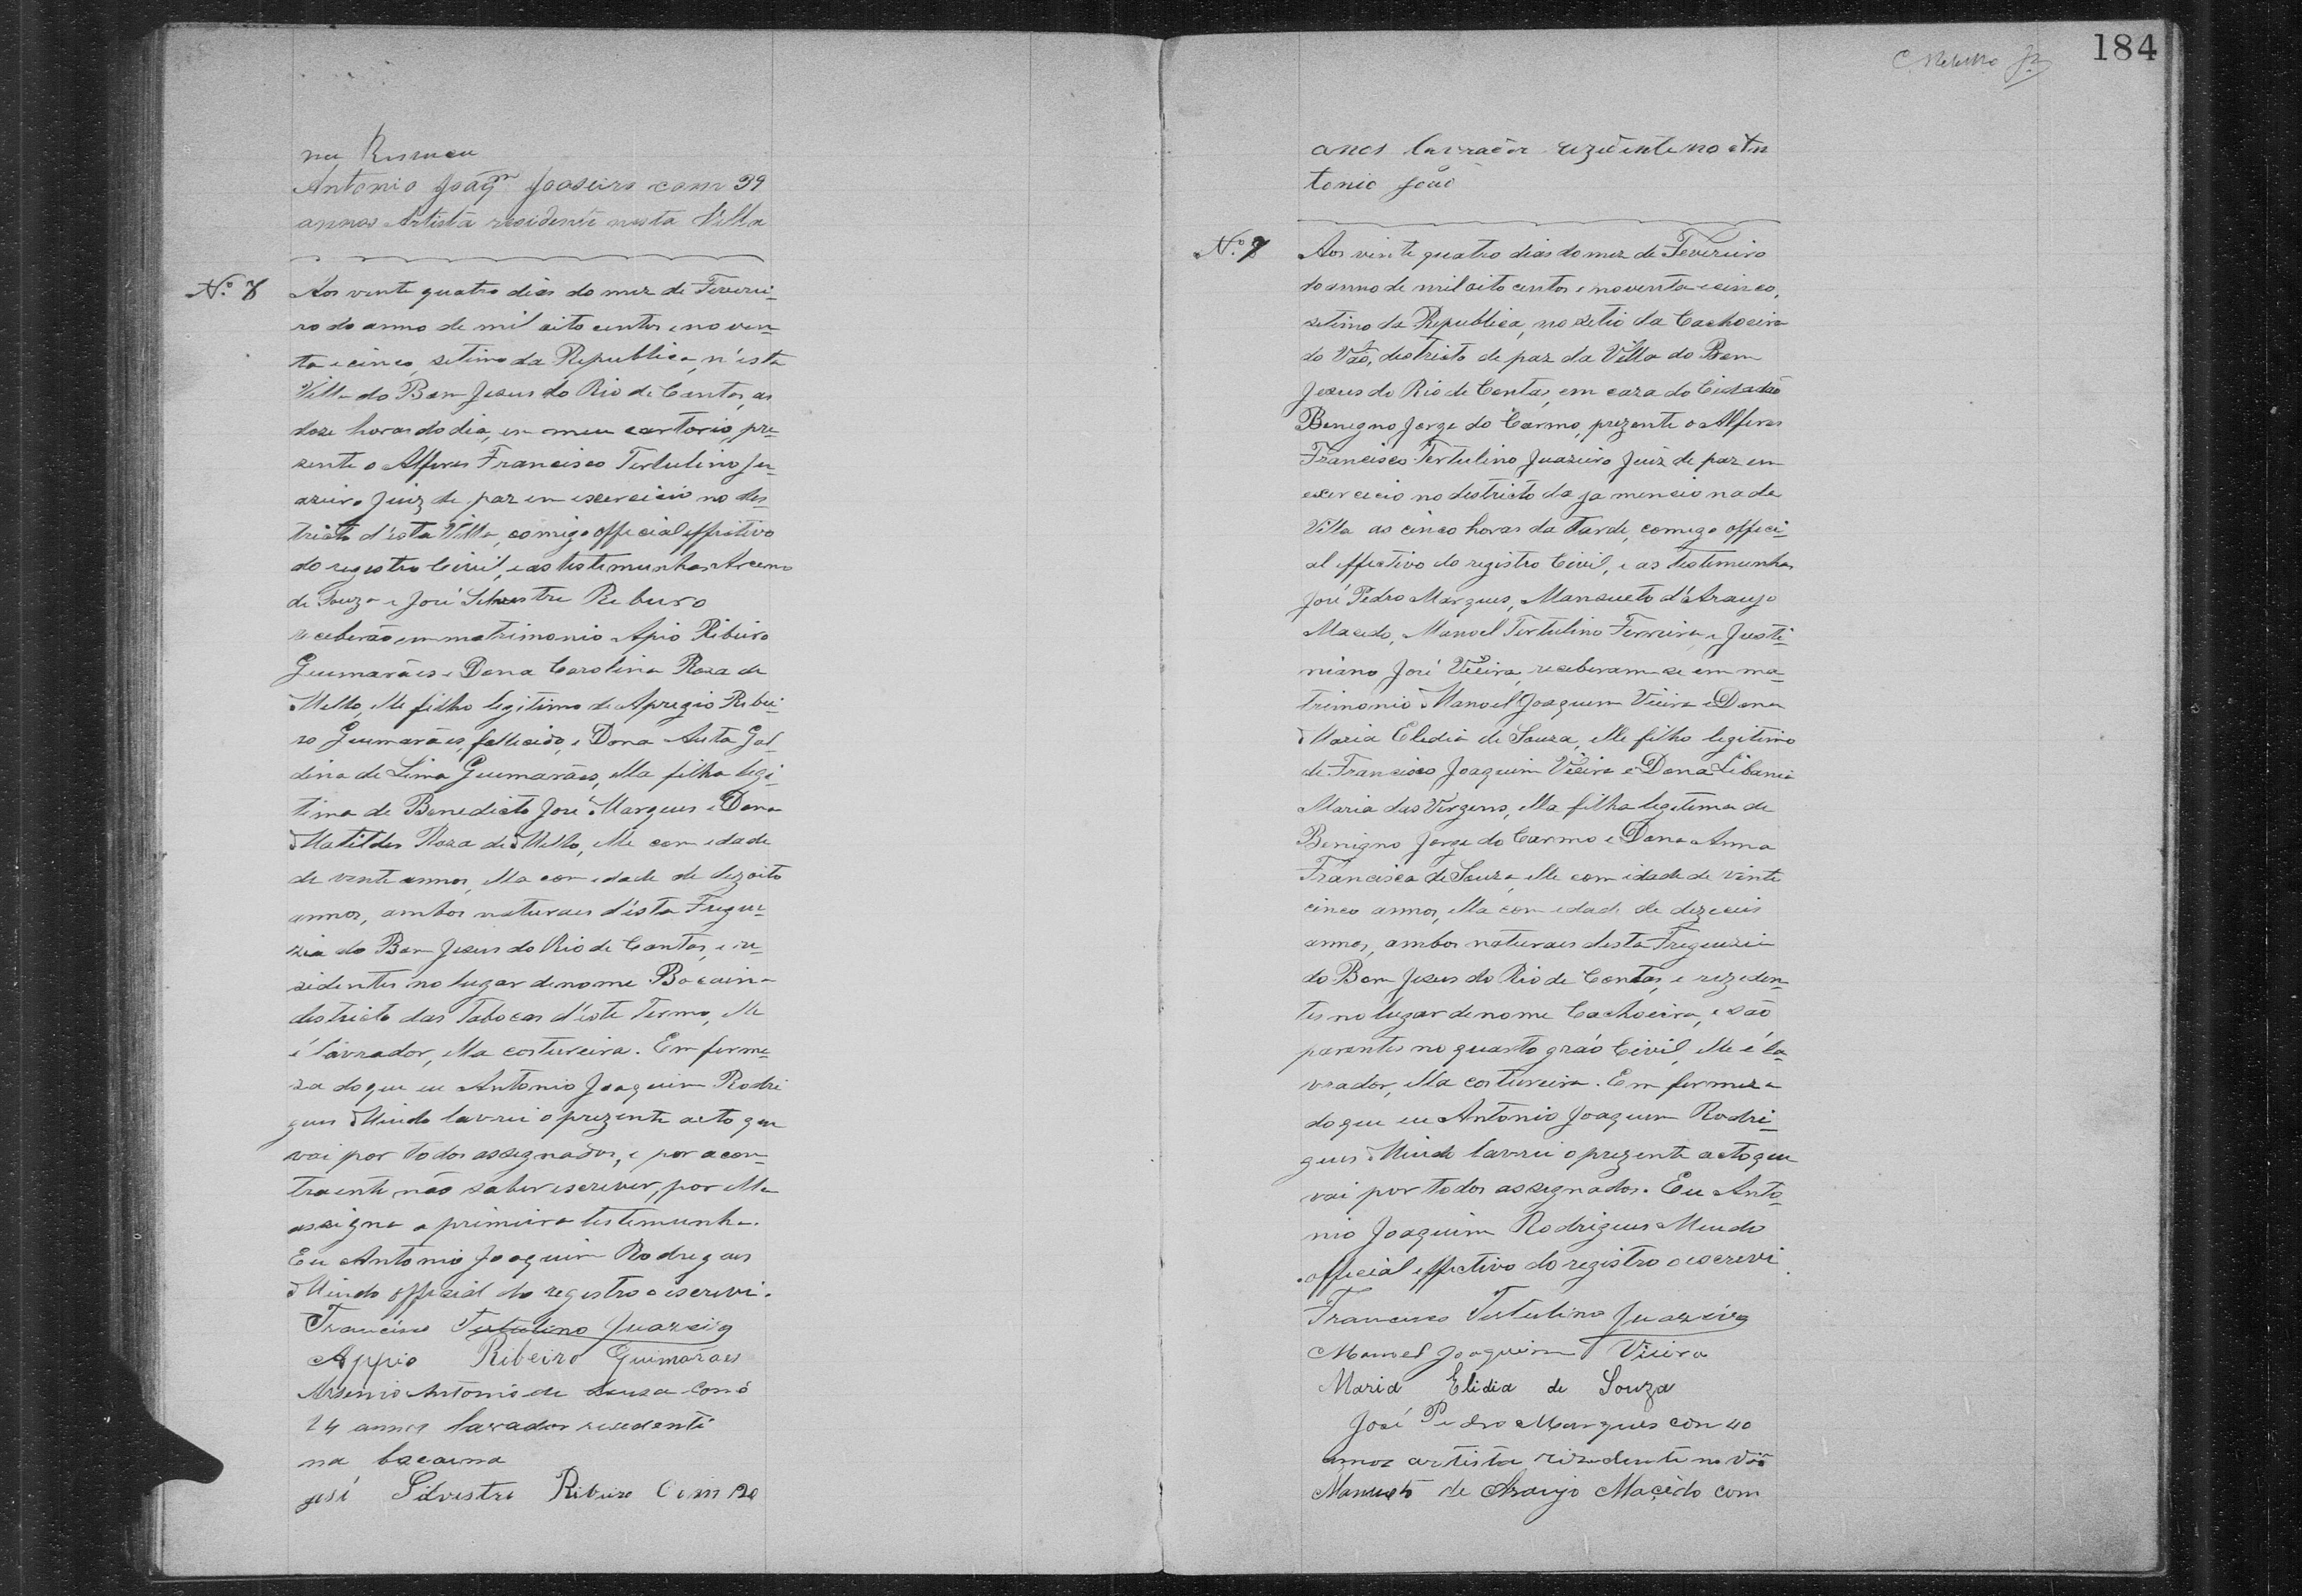 na
Antonio Joaqm Joaseiro com 39
annos Artista residente nesta Villa
N.º 8
Aos vente quatro dias do mez de Feverei-
ro do anno de mil oito centos e noven-
ta e cinco, setimo da Republica, n'esta
Villa do Bom Jesus do Rio de Contas, as
doze horas do dia, em meu cartorio, pre-
zente o Alferes Francisco Tertulino Ju-
azeiro Juiz de paz em exercicio no des-
tricto d'esta Villa, comigo official effectivo
do registro Civil, e as testemunhas Arceno
de Souza e José Silvestre Ribeiro
receberão em matrimonio Apio Ribeiro
Guimarães e Dona Carolina Roza de
Mello, elle filho legitimo de Apregio Ribei-
ro Guimarães, fallicido, e Dona Auta Gal-
dina de Lima Guimarães, ella filha legi-
tima de Benedicto José Marques e Dona
Matildes Roza de Mello, elle com edade
de vente annos, ella com edade de dezoito
annos, ambos naturaes d'esta Fregue-
zia do Bom Jesus do Rio de Contas, e re-
zidentes no lugar denome Bocaina
destricto das Tabocas d'este Termo, elle
é lavrador, ella costureira. Em firme-
za do que eu Antonio Joaquim Rodri
gues Mindo lavrei o prezente acto que
vai por todos assegnados, e por a con-
traente não saber escrever, por ella
assigna a primeira testemunha.
Eu Antonio Joaquim Rodrigues
Mindo official do registro o escrevi.
Francisco Tertulino Juazeiro
Appio Ribeiro Guimarães
Arsenio Antonio de Souza Com
24 annos lavrador residente
na bacaina
José Silvestre Ribeiro Com 20
184
annos lavrador rezidente no An
tonio João
N.º 7
Aos vinte quatro dias do mez de Fevereiro
do anno de mil oito centos e noventa e cinco,
setimo da Republica, no setio da Cachoeira
do Vão, destricto de paz da Villa do Bom
Jezus do Rio de Contas, em caza do Cidadão
Benegno Jorge do Carmo, prezente o Alferes
Francisco Tertulino Juazeiro Juiz de paz em
exercicio no destricto da ja mencionada
Villa as cinco horas da Tarde, comego offici-
al effectivo do registro Civil, e as testemunhas
José Pedro Marques, Mansueto d'Araujo
Macedo, Manoel Tertulino Ferreira, e Justi-
niano José Vieira, receberam-se em ma-
trimonio Manoel Joaquim Vieira e Dona
Maria Elidia de Souza, elle filho legitimo
de Francisco Joaquim Vieira e Dona Libania
Maria das Virgens, ella filha legitima de
Benigno Jorge do Carmo e Dona Anna
Francisca de Souza, elle com idade de vinte
cinco annos, ella com edade de dezeceis
annos, ambos naturaes desta Freguezia
do Bom Jezus do Rio de Contas, e rezeden-
tes no lugar denome Cachoeira, e são
parentes no quarto gráo Civil, elle é la-
vrador, ella costureira. Em firmeza
do que eu Antonio Joaquim Rodri-
gues Mindo lavrei o prezente acto que
vai por todos assegnados. Eu Anto-
nio Joaquim Rodrigues Mindo
official effectivo do registro o escrevi.
Francisco Tertulino Juazeiro
Manoel Joaquim Vieira
Maria Elidia de Souza
José Pedro Marques com 40
annos artista rizedente no Vão
Mansueto de Araujo Macêdo com